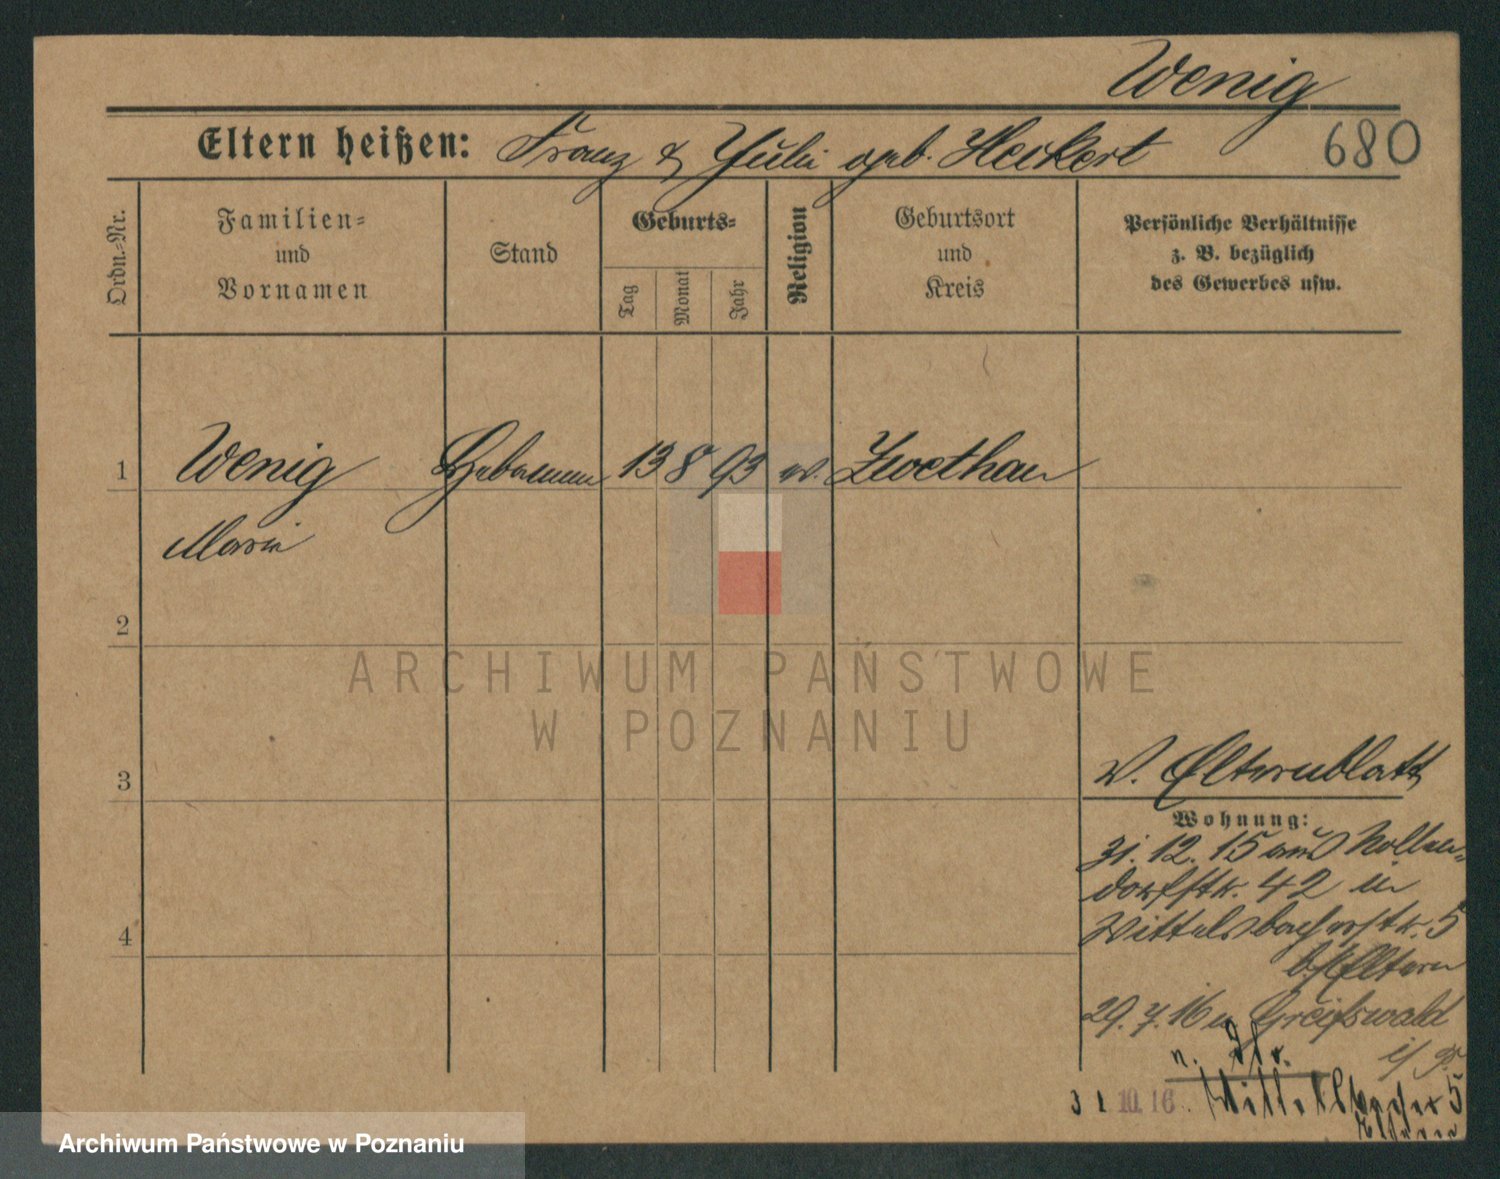 Wenig
Eltern heißen: Franz & Julie geb. Heckert
680
Ordn.-Nr.
Familien-
und
Vornamen
Stand
Geburts-
Tag
Monat
Jahr
Religion
Geburtsort
und
Kreis
Persönliche Verhältnisse
z. B. bezüglich
des Gewerbes usw.
1
Wenig
13
8
93
Zwethau
Marie
2
ARCHIWUM PAŃSTWOWE
W POZNANIU
3
v. Elternblatt
Wohnung:
31. 12. 15 aus Nollen-
dorfstr. 42 in
Wittelsbacherstr. 5
b/ Eltern
4
29. 7. 16 n. Greifswald
31 10. 16. Wittelsbacher 5
Eltern
Archiwum Państwowe w Poznaniu